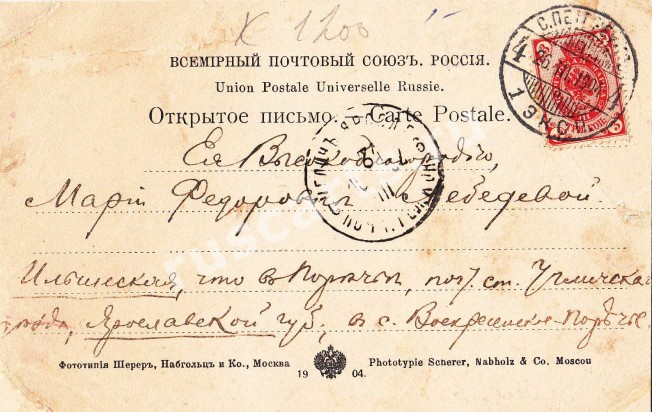 X 1200
ВСЕМІРНЫЙ ПОЧТОВЫЙ СОЮЗЪ. РОССІЯ.
Union Postale Universelle Russie.
Открытое письмо. — Carte Postale.
Ея Высокоблагородію,
Маріи Федоровнѣ Лебедевой.
Ильинская, что в Порѣчьи, почт. ст. Угличска
города, Ярославской губ, в с. Воскресенское-Порѣчье.
Фототипія Шереръ, Набгольцъ и Ко., Москва
Phototypie Scherer, Nabholz & Co. Moscou
19 04.
С.ПЕТ
4
26.III.1904
1 ЭКСП.